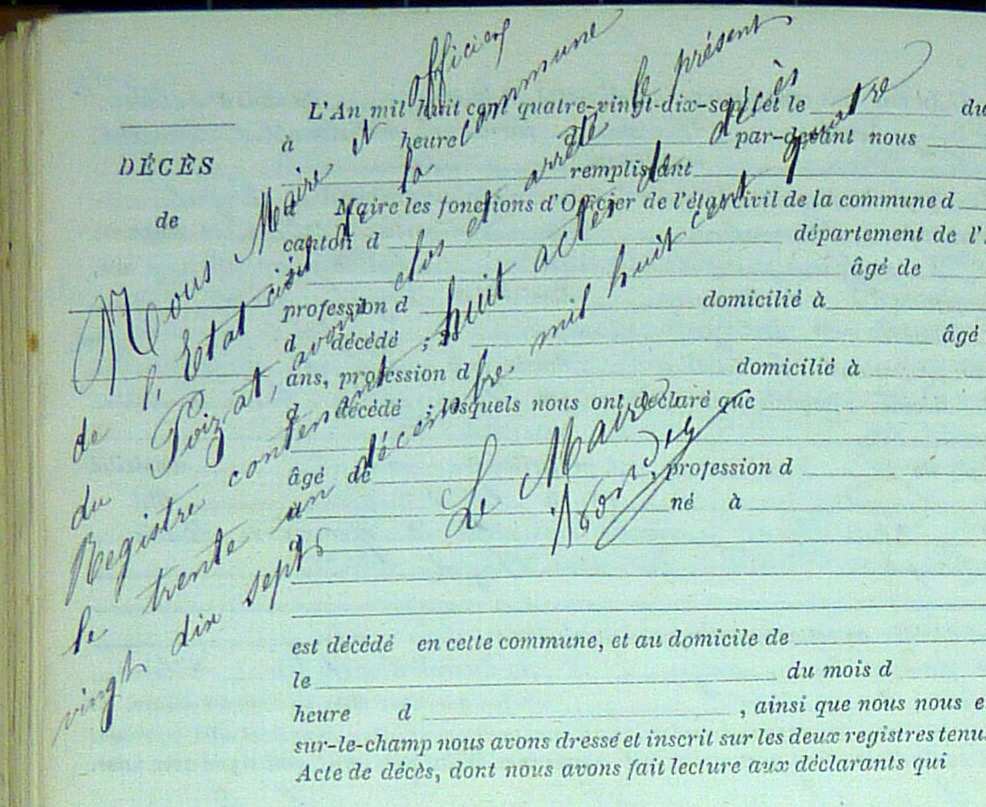 L'An mil huit cent quatre-vingt-dix-sept et le du
DÉCÈS
à heure par-devant nous
remplissant
de
d Maire les fonctions d'Officier de l'état civil de la commune d
canton d département de l'
âgé de
profession d domicilié à
d décédé ; âgé
ans, profession d domicilié à
d décédé ; lesquels nous ont déclaré que
âgé de , profession d
né à
est décédé en cette commune, et au domicile de
le du mois d
heure d , ainsi que nous nous
sur-le-champ nous avons dressé et inscrit sur les deux registres tenus
Acte de décès, dont nous avons fait lecture aux déclarants qui
Nous Maire et officier
de l'Etat civil de la commune
du Poizat, avons clos et arrêté le présent
Registre contenant huit actes de décès
le trente un décembre mil huit cent quatre
vingt dix sept
Le Maire